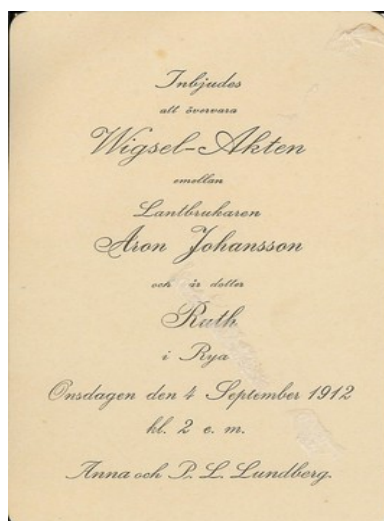 Inbjudes
att övervara
Wigsel-Akten
emellan
Lantbrukaren
Aron Johansson
och vår dotter
Ruth
i Rya
Onsdagen den 4 September 1912
kl. 2 e. m.
Anna och P. L. Lundberg.